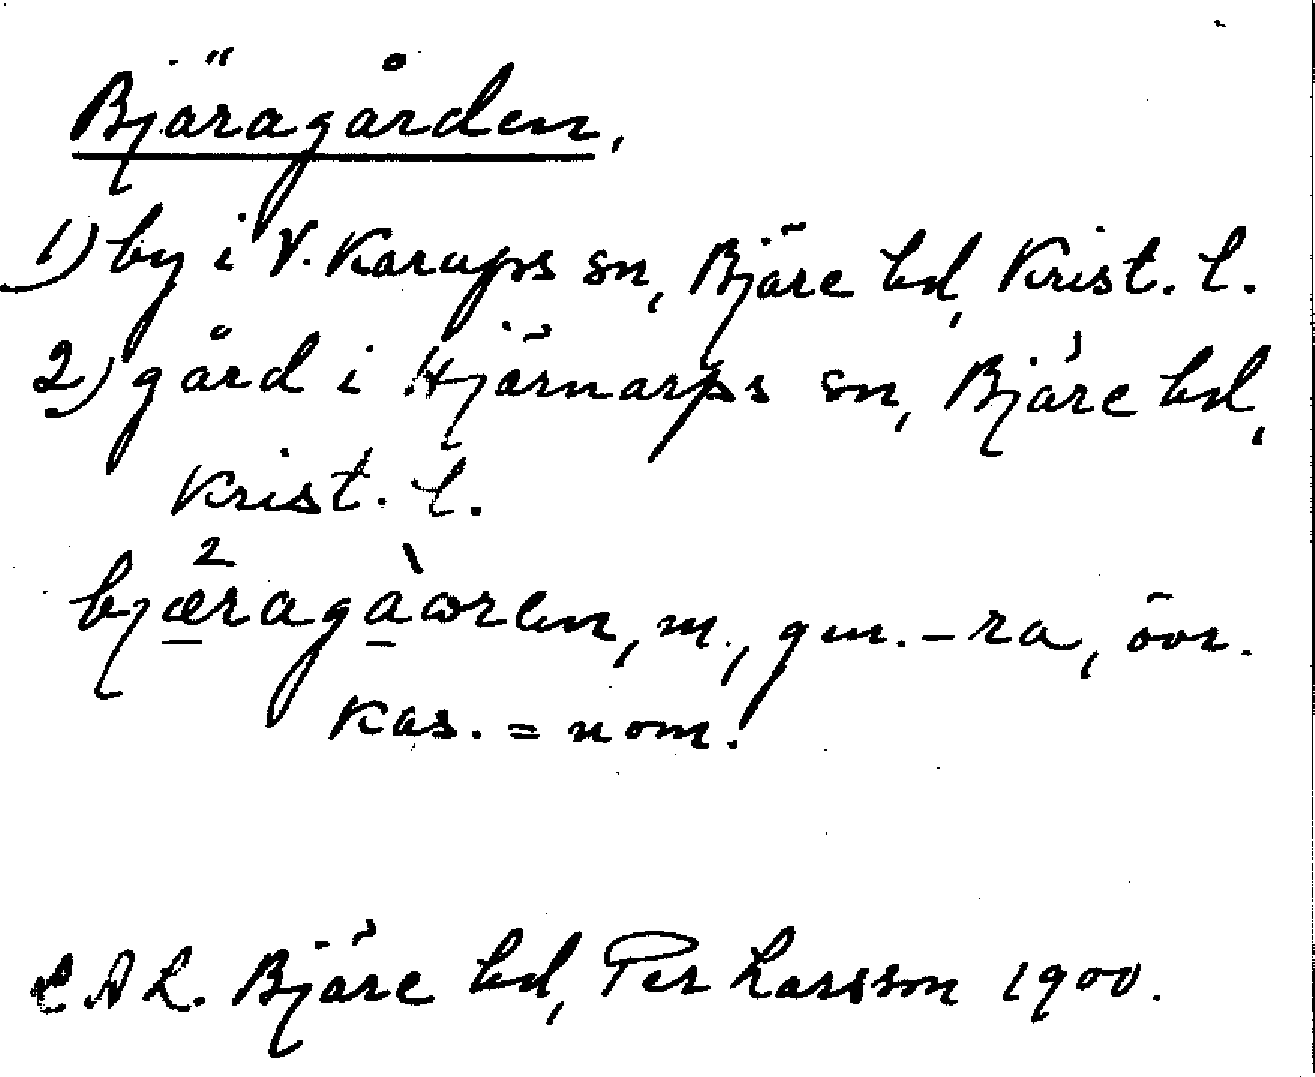 Bjäragården,
1) by i V. Karups sn, Bjäre hd, Krist. l.
2) gård i Hjärnarps sn, Bjäre hd,
Krist. l.
m., gen. -ra, övr.
kas. = nom.
LAL. Bjäre hd, Per Larsson 1900.